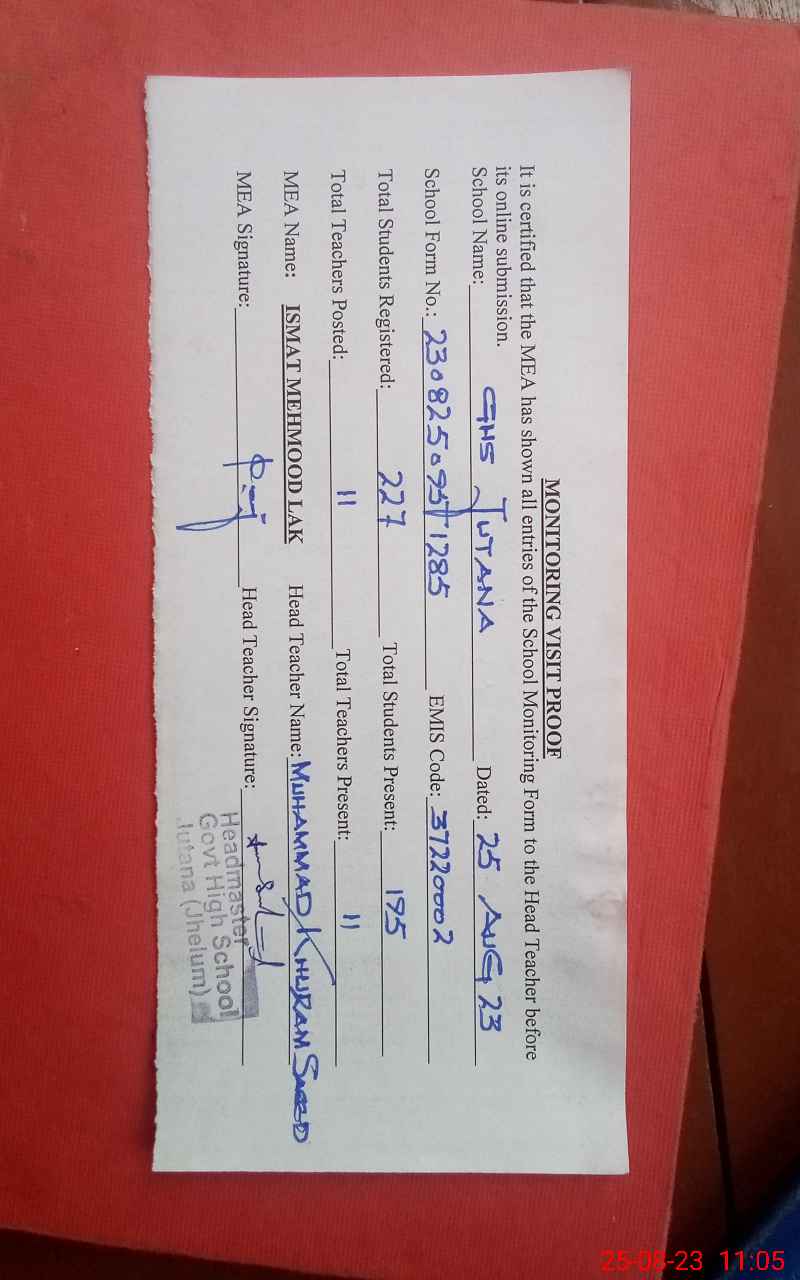 MONITORING VISIT PROOF
It is certified that the MEA has shown all entries of the School Monitoring Form to the Head Teacher before
its online submission.
School Name: GHS JUTANA Dated: 25 AUG 23
School Form No.: 23082509571285 EMIS Code: 37220002
Total Students Registered: 227 Total Students Present: 195
Total Teachers Posted: 11 Total Teachers Present: 11
MEA Name: ISMAT MEHMOOD LAK Head Teacher Name: MUHAMMAD KHURAM SAEED
MEA Signature: Head Teacher Signature:
Headmaster
Govt High School
Jutana (Jhelum)
25-08-23 11:05